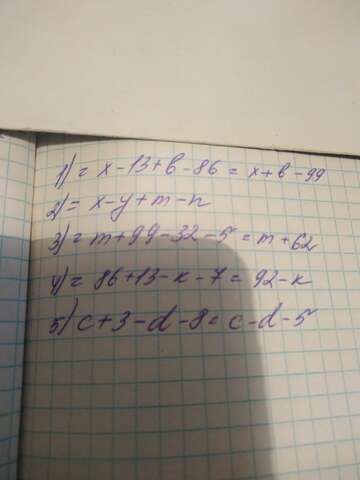 1) = x - 13 + b - 86 = x + b - 99
2) = x - y + m - n
3) = m + 99 - 32 - 5 = m + 62
4) = 86 + 13 - k - 7 = 92 - k
5) c + 3 - d - 8 = c - d - 5